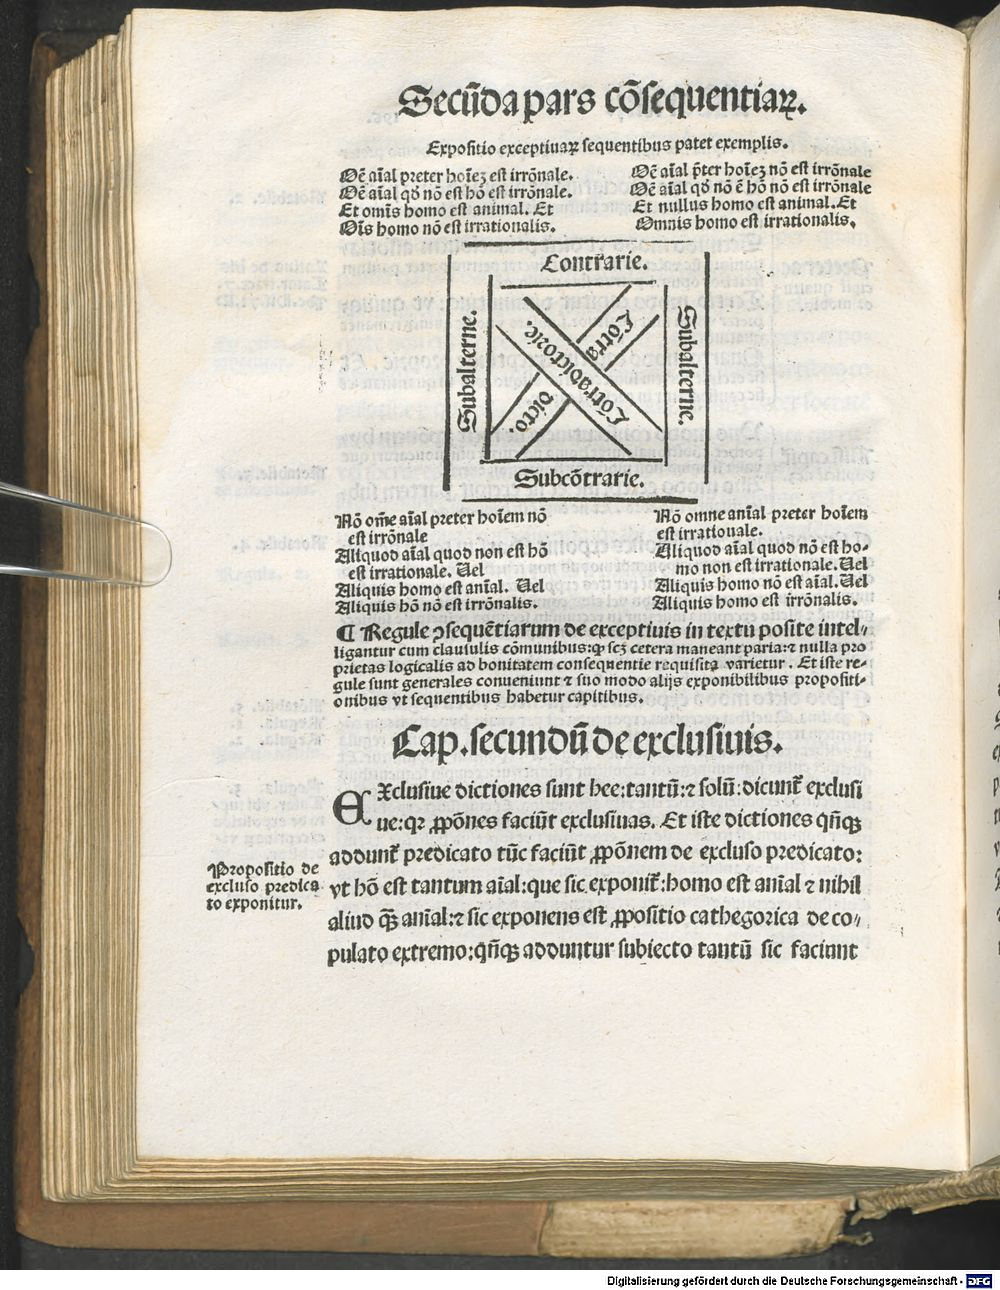 Secūda pars cōsequentiaꝝ.
Expositio exceptiuaꝝ sequentibus patet exemplis.
Oē aīal preter hoīeꝫ est irrōnale.
Oē aīal qď nō est hō est irrōnale.
Et omīs homo est animal. Et
Oīs homo nō est irrationalis.
Oē aīal p̄ter hoīeꝫ nō est irrōnale
Oē aīal qď nō ē hō nō est irrōnale
Et nullus homo est animal. Et
Omnis homo est irrationalis.
Contrarie.
Subalterne.
Cōtradictorie.
Cōtra
dicto.
Subalterne.
Subcōtrarie.
Nō om̄e aīal preter hoīem nō
est irrōnale
Aliquod aīal quod non est hō
est irrationale. Uel
Aliquis homo est anīal. Uel
Aliquis hō nō est irrōnalis.
Nō omne anīal preter hoīem
est irrationale.
Aliquod aīal quod nō est ho-
mo non est irrationale. Uel
Aliquis homo nō est aīal. Uel
Aliquis homo est irrōnalis.
¶ Regule ꝯsequētiarum de exceptiuis in textu posite intel-
ligantur cum clausulis cōmunibus: ꝙ scꝫ cetera maneant paria: ⁊ nulla pro
prietas logicalis ad bonitatem consequentie requisita varietur. Et iste re-
gule sunt generales conueniunt ⁊ suo modo alijs exponibilibus propositi-
onibus vt sequentibus habetur capitibus.
Cap. secundū de exclusiuis.
EXclusiue dictiones sunt hec: tantū: ⁊ solū: dicunt̄ exclusi
ue: qꝛ ꝓpōnes faciūt exclusiuas. Et iste dictiones qn̄qꝫ
addunt̄ predicato tūc faciūt ꝓpōnem de excluso predicato:
vt hō est tantum aīal: que sic exponit̄: homo est anīal ⁊ nihil
aliud qꝫ̄ anīal: ⁊ sic exponens est ꝓpositio cathegorica de co-
pulato extremo: qn̄qꝫ adduntur subiecto tantū sic faciunt
Propositio de
excluso predica
to exponitur.
Digitalisierung gefördert durch die Deutsche Forschungsgemeinschaft - DFG